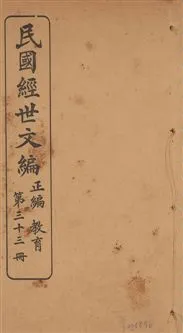 民國經世文編
正編 教育
第三十三冊